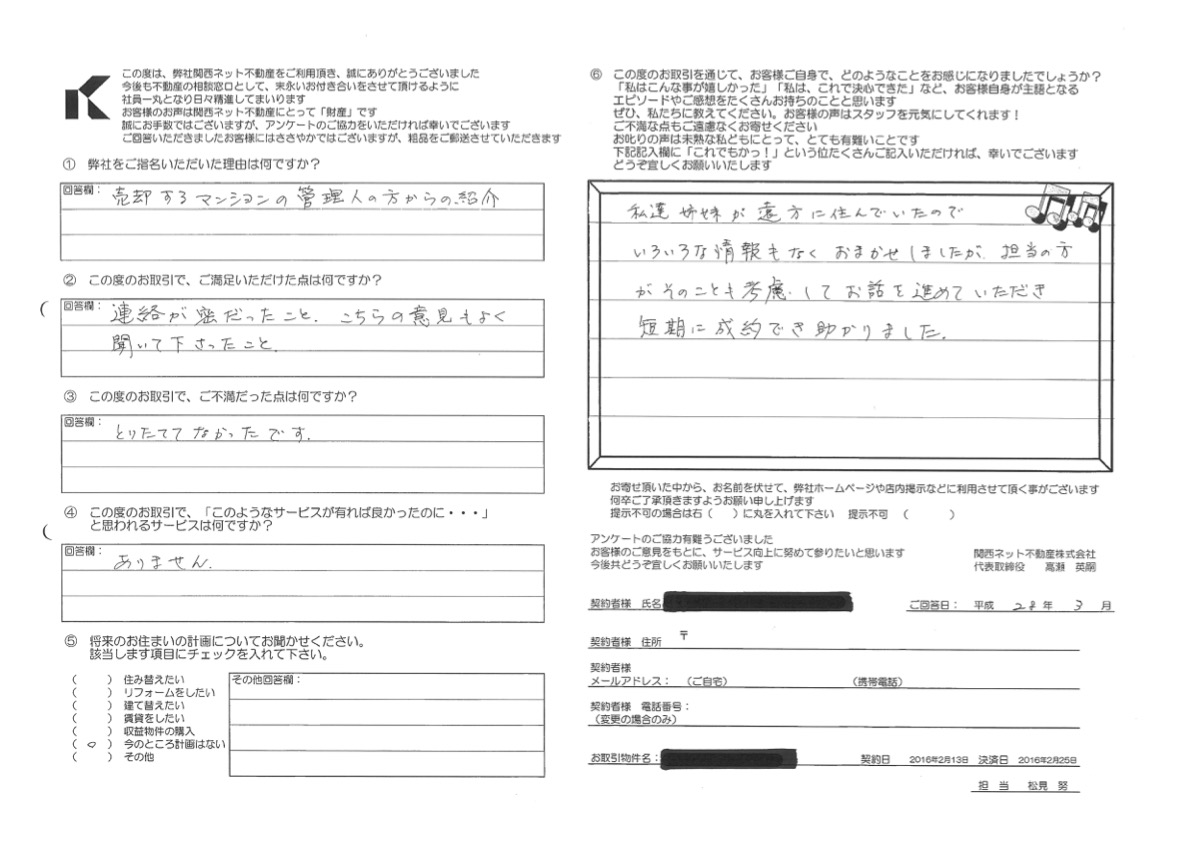 この度は、弊社関西ネット不動産をご利用頂き、誠にありがとうございました
今後も不動産の相談窓口として、末永いお付き合いをさせて頂けるように
社員一丸となり日々精進してまいります
お客様のお声は関西ネット不動産にとって「財産」です
誠にお手数ではございますが、アンケートのご協力をいただければ幸いでございます
ご回答いただきましたお客様にはささやかではございますが、粗品をご郵送させていただきます
① 弊社をご指名いただいた理由は何ですか？
回答欄：
売却するマンションの管理人の方からの紹介
② この度のお取引で、ご満足いただけた点は何ですか？
回答欄：
連絡が密だったこと、こちらの意見もよく
聞いて下さったこと。
③ この度のお取引で、ご不満だった点は何ですか？
回答欄：
とりたててなかったです。
④ この度のお取引で、「このようなサービスが有れば良かったのに・・・」
と思われるサービスは何ですか？
回答欄：
ありません。
⑤ 将来のお住まいの計画についてお聞かせください。
該当します項目にチェックを入れて下さい。
（　　） 住み替えたい
（　　） リフォームをしたい
（　　） 建て替えたい
（　　） 賃貸をしたい
（　　） 収益物件の購入
（ ○ ） 今のところ計画はない
（　　） その他
その他回答欄：
⑥ この度のお取引を通じて、お客様ご自身で、どのようなことをお感じになりましたでしょうか？
「私はこんな事が嬉しかった」「私は、これで決心できた」など、お客様自身が主語となる
エピソードやご感想をたくさんお持ちのことと思います
ぜひ、私たちに教えてください。お客様の声はスタッフを元気にしてくれます！
ご不満な点もご遠慮なくお寄せください
お叱りの声は未熟な私どもにとって、とても有難いことです
下記記入欄に「これでもかっ！」という位たくさんご記入いただければ、幸いでございます
どうぞ宜しくお願いいたします
私達姉妹が遠方に住んでいたので
いろいろな情報もなくおまかせしましたが、担当の方
がそのことも考慮してお話を進めていただき
短期に成約でき助かりました。
お寄せ頂いた中から、お名前を伏せて、弊社ホームページや店内掲示などに利用させて頂く事がございます
何卒ご了承頂きますようお願い申し上げます
提示不可の場合は右（　　）に丸を入れて下さい　提示不可　（　　　）
アンケートのご協力有難うございました
お客様のご意見をもとに、サービス向上に努めて参りたいと思います
今後共どうぞ宜しくお願いいたします
関西ネット不動産株式会社
代表取締役　高瀬　英嗣
契約者様　氏名
ご回答日：　平成　28 年　3　月
契約者様　住所　〒
契約者様
メールアドレス：　（ご自宅）　（携帯電話）
契約者様　電話番号：
（変更の場合のみ）
お取引物件名：
契約日　2016年2月13日　決済日　2016年2月25日
担　当　松見　努